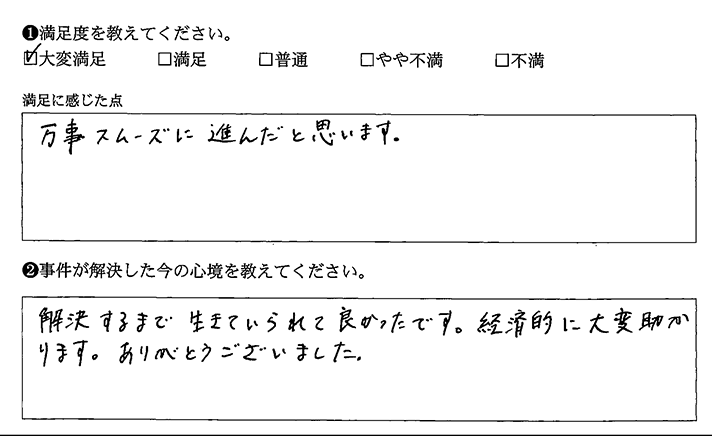 ❶満足度を教えてください。
☑大変満足 □満足 □普通 □やや不満 □不満
満足に感じた点
万事スムーズに進んだと思います。
❷事件が解決した今の心境を教えてください。
解決するまで生きていられて良かったです。経済的に大変助か
ります。ありがとうございました。